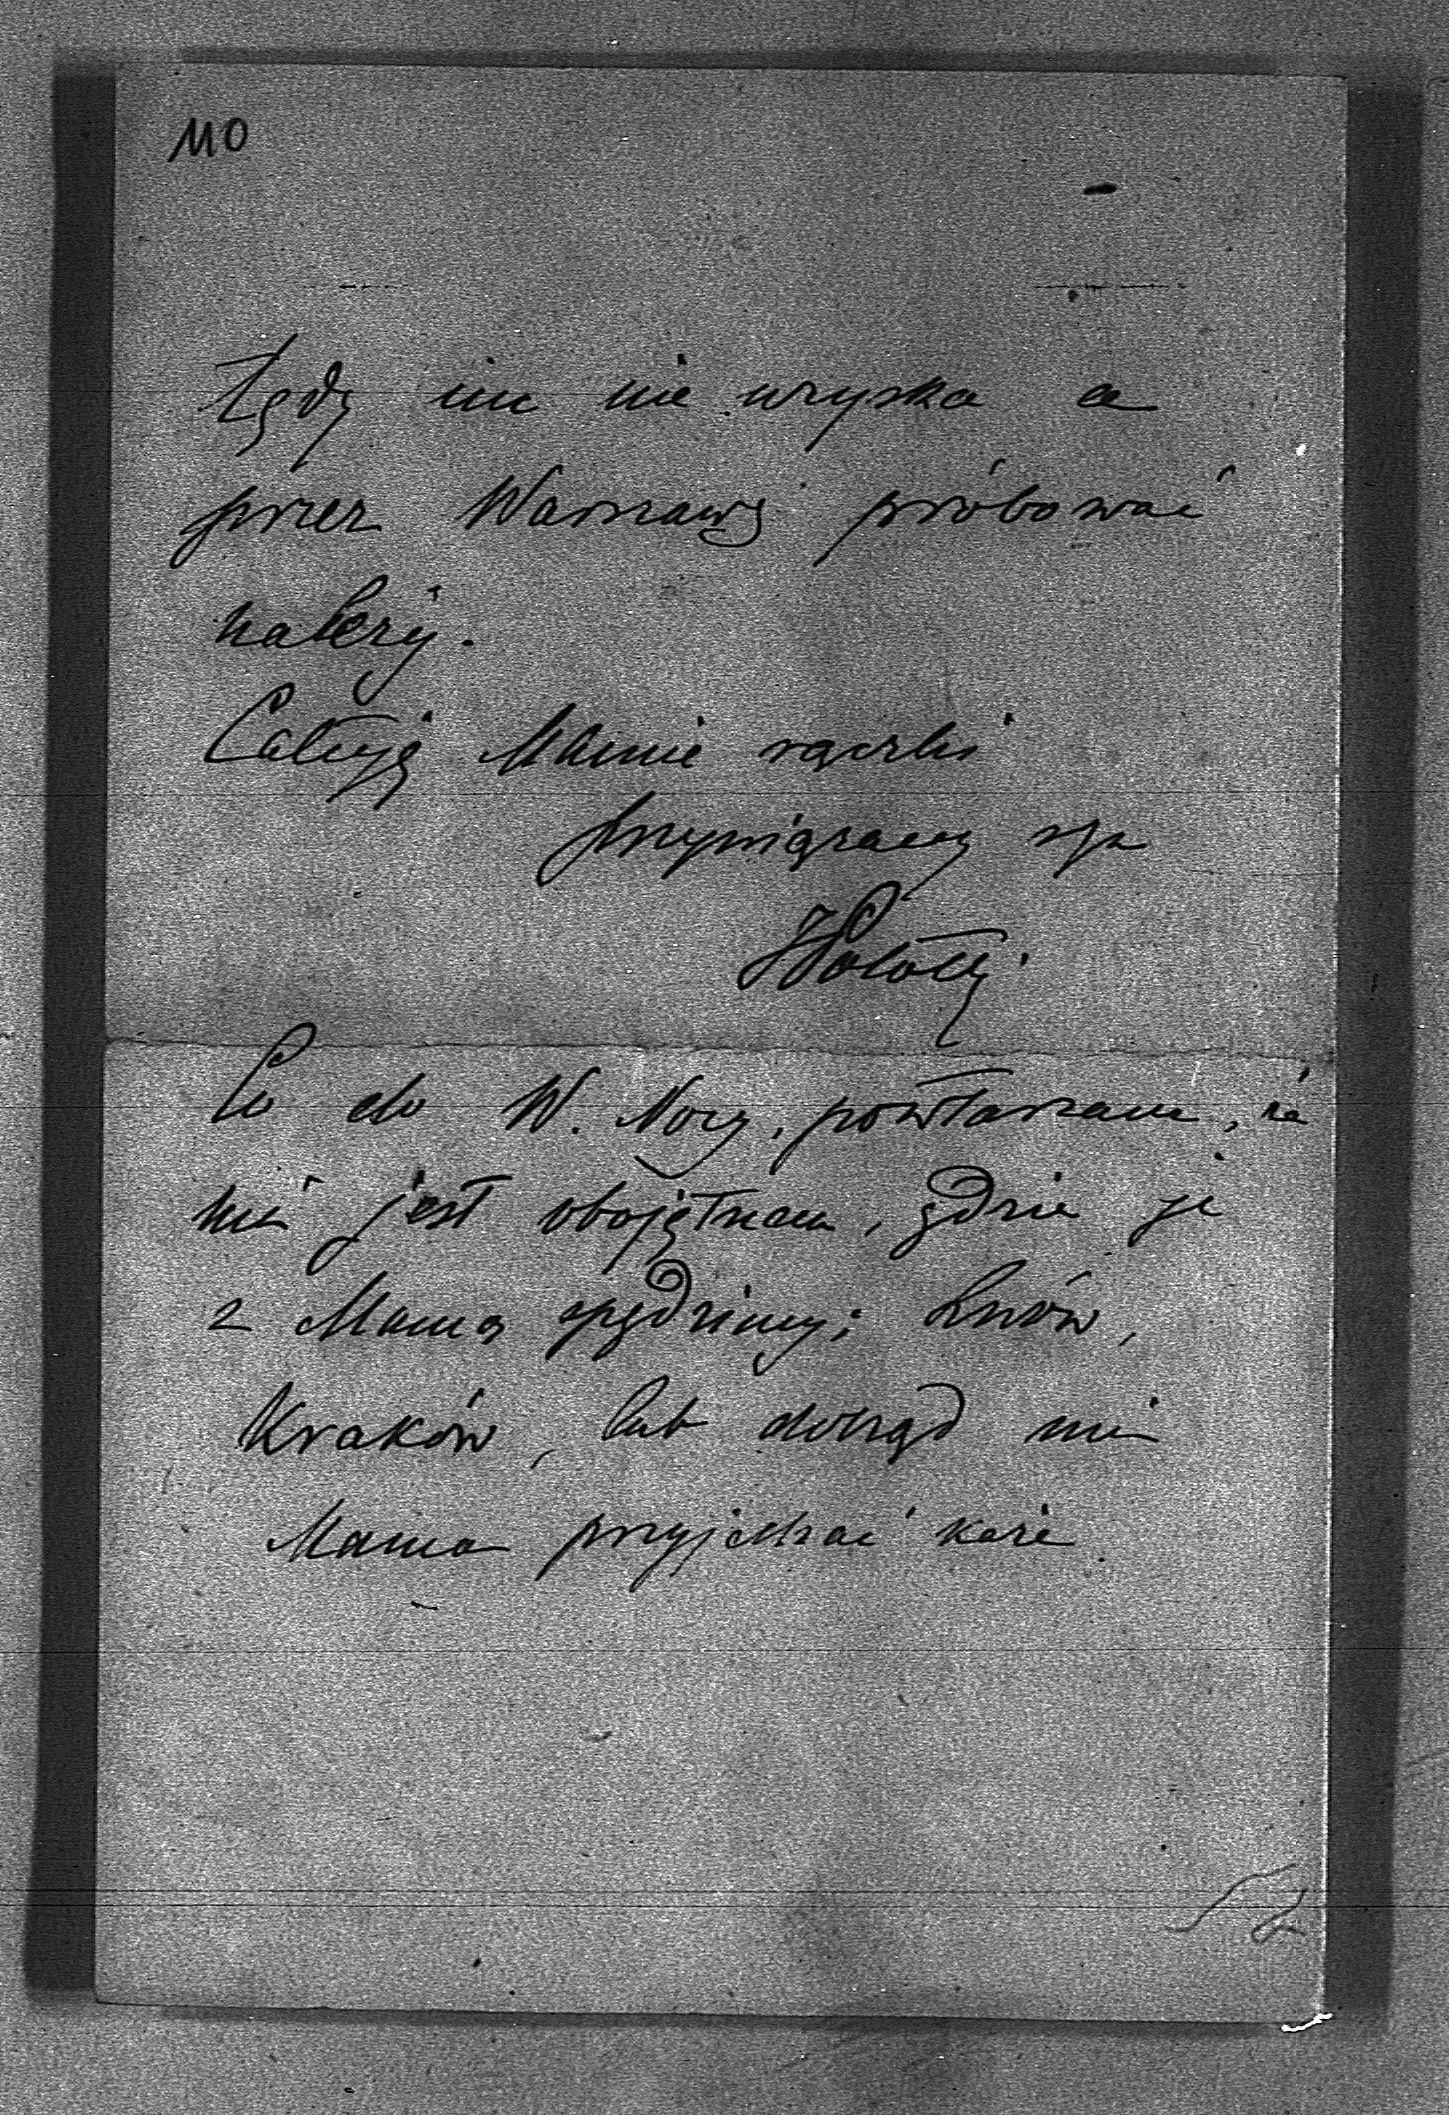 110
tędy nic nie uzyska a
przez Warszawę próbować
należy.
Całuję Mamie rączki
przywiązany syn
JPotocki.
Co do W. Nocy, powtarzam, że
mi jest obojętnem, gdzie je
z Mamą spędzimy; Lwów,
Kraków, lub dokąd mi
Mama przyjechać każe.